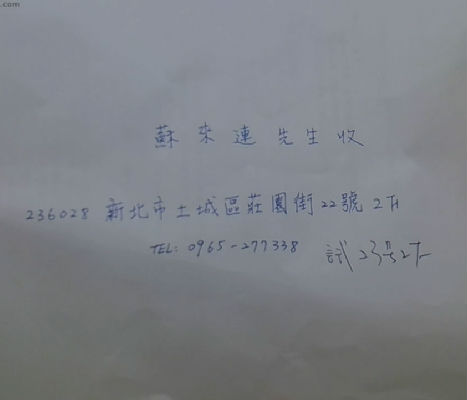 .com
蘇來連先生收
236028 新北市土城區莊園街22號 2F
TEL: 0965-277338
試 23号2F